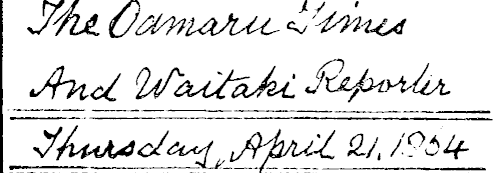 The Oamaru Times
And Waitaki Reporter
Thursday, April 21, 1864